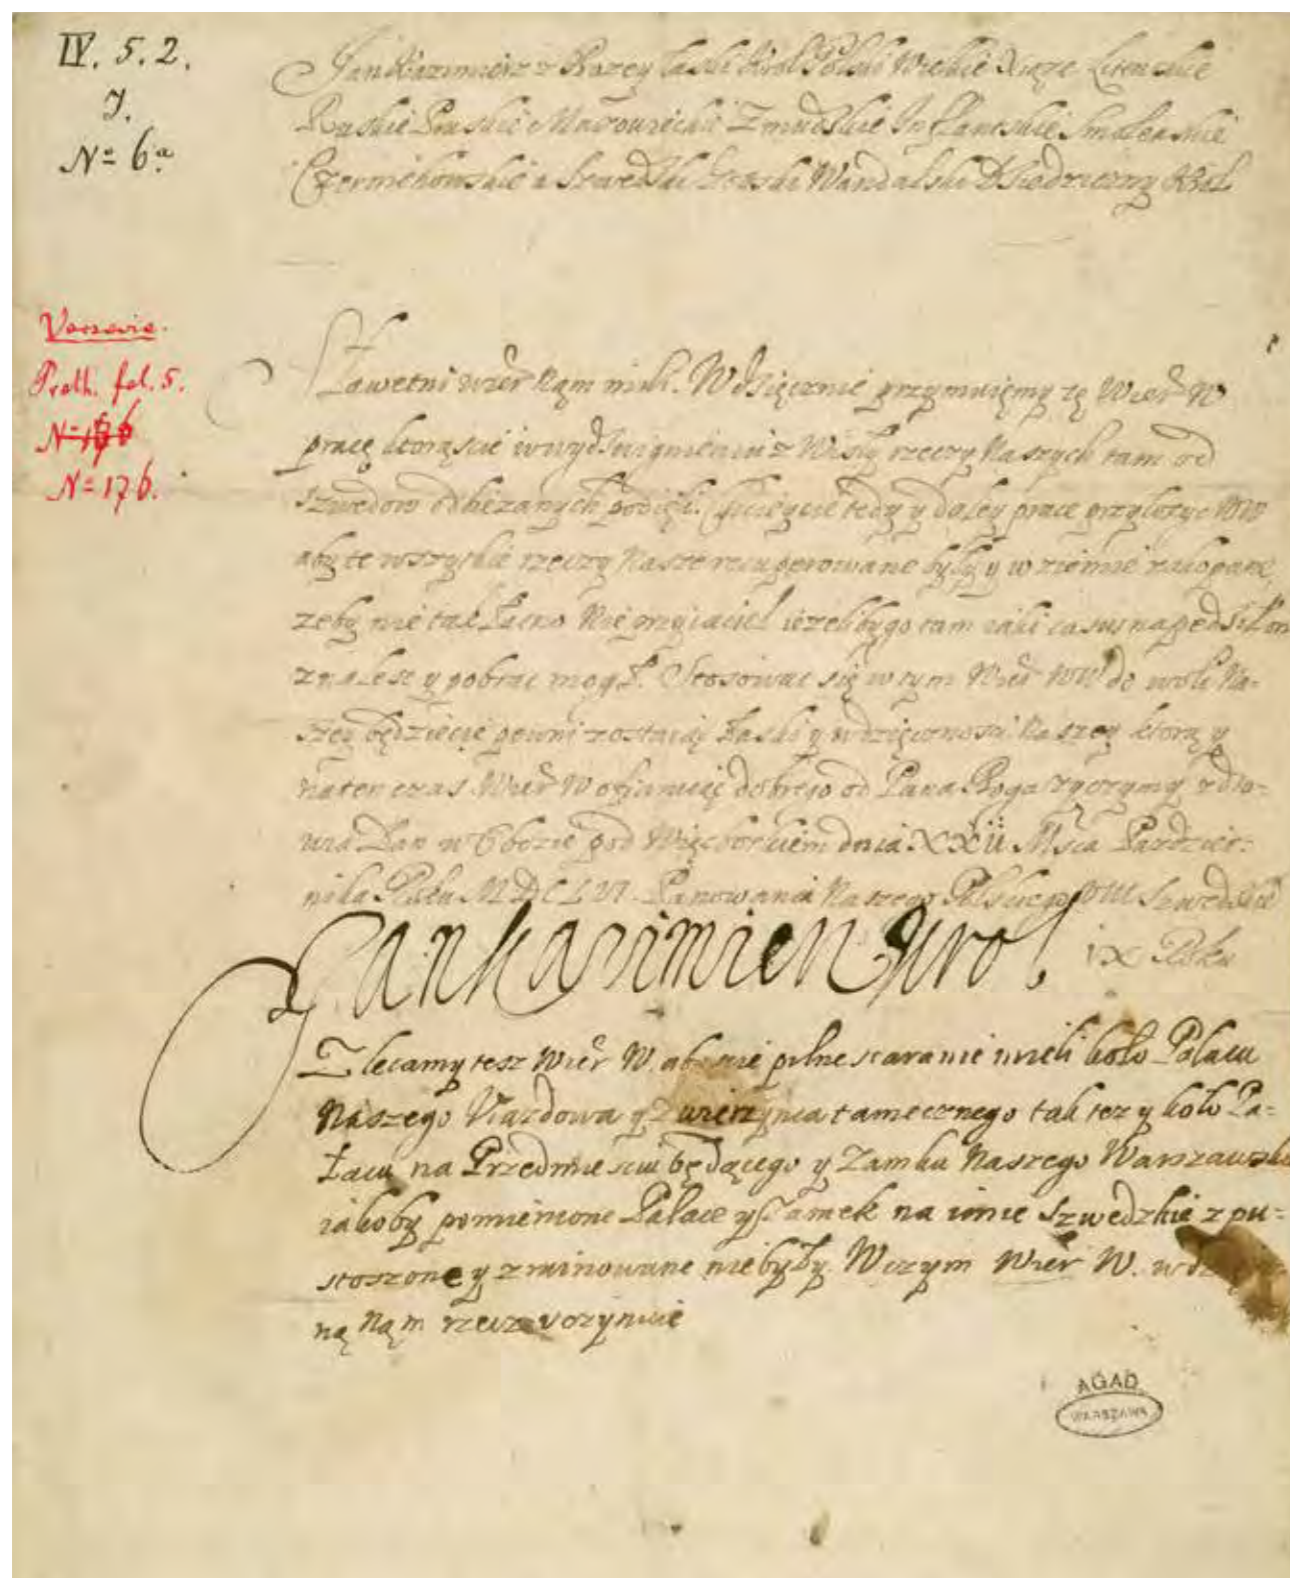 IV. 5. 2.
J.
No 6a.
Jan Kazimierz z Bozey Łaski Krol Polski Wielkie Xiąze Litewskie
Ruskie Pruskie Mazowieckie Zmudzkie Inflantskie Smolenskie
Czerniehowskie a Szwedzki Gotski Wandalski Dziedziczny Krol
Varsavie.
Proth. fol. 5.
No 176
No 176.
Sławetni wier Nąm mili. Wdzięcznie przymuięmy tę Wier W
pracę ktorąscie w wydzwignieniu z Wisły rzeczy Naszych tam od
Szwedow odbiezanych podięli. Chcieycie tedy y daley pracę przylozyc
aby te wszystkie rzeczy Nasze recuperowane były y w ziemie zakopane
zeby nie tak Łacno Nieprzyiaciel iezeliby go tam iaki casus napędził on
znalesc y pobrac mogł. Stosowac się w tym Wier WW do woli Na-
szey będziecie pewni zostaiąc Łaski y wdzięcznosci Naszey ktorą y
naten czas Wier W ofiaruiąc dobrego od Pana Boga zyczymy zdro-
wia Dan w Obozie pod Więcborkiem dnia XXII Msca Pazdzier-
nika Roku MDCLVI. Panowania Naszego Polskiego VIII Szwedzkie
IX Roku
Jan Kazimierz Krol
Zlecamy tesz Wier W. abyscie pilne staranie mieli koło Pałacu
Naszego Viazdowa y Zwierzynca tamecznego taktez y koło Pa-
Łacu na Przedmiesciu będącego y Zamku Naszego Warszawski
iakoby pomienione Pałace y Zamek na imie Szwedzkie zpu-
stoszone y zruinowane niebyły. Wczym Wier W.
ną Nąm rzecz vczynicie
AGAD
WARSZAWA